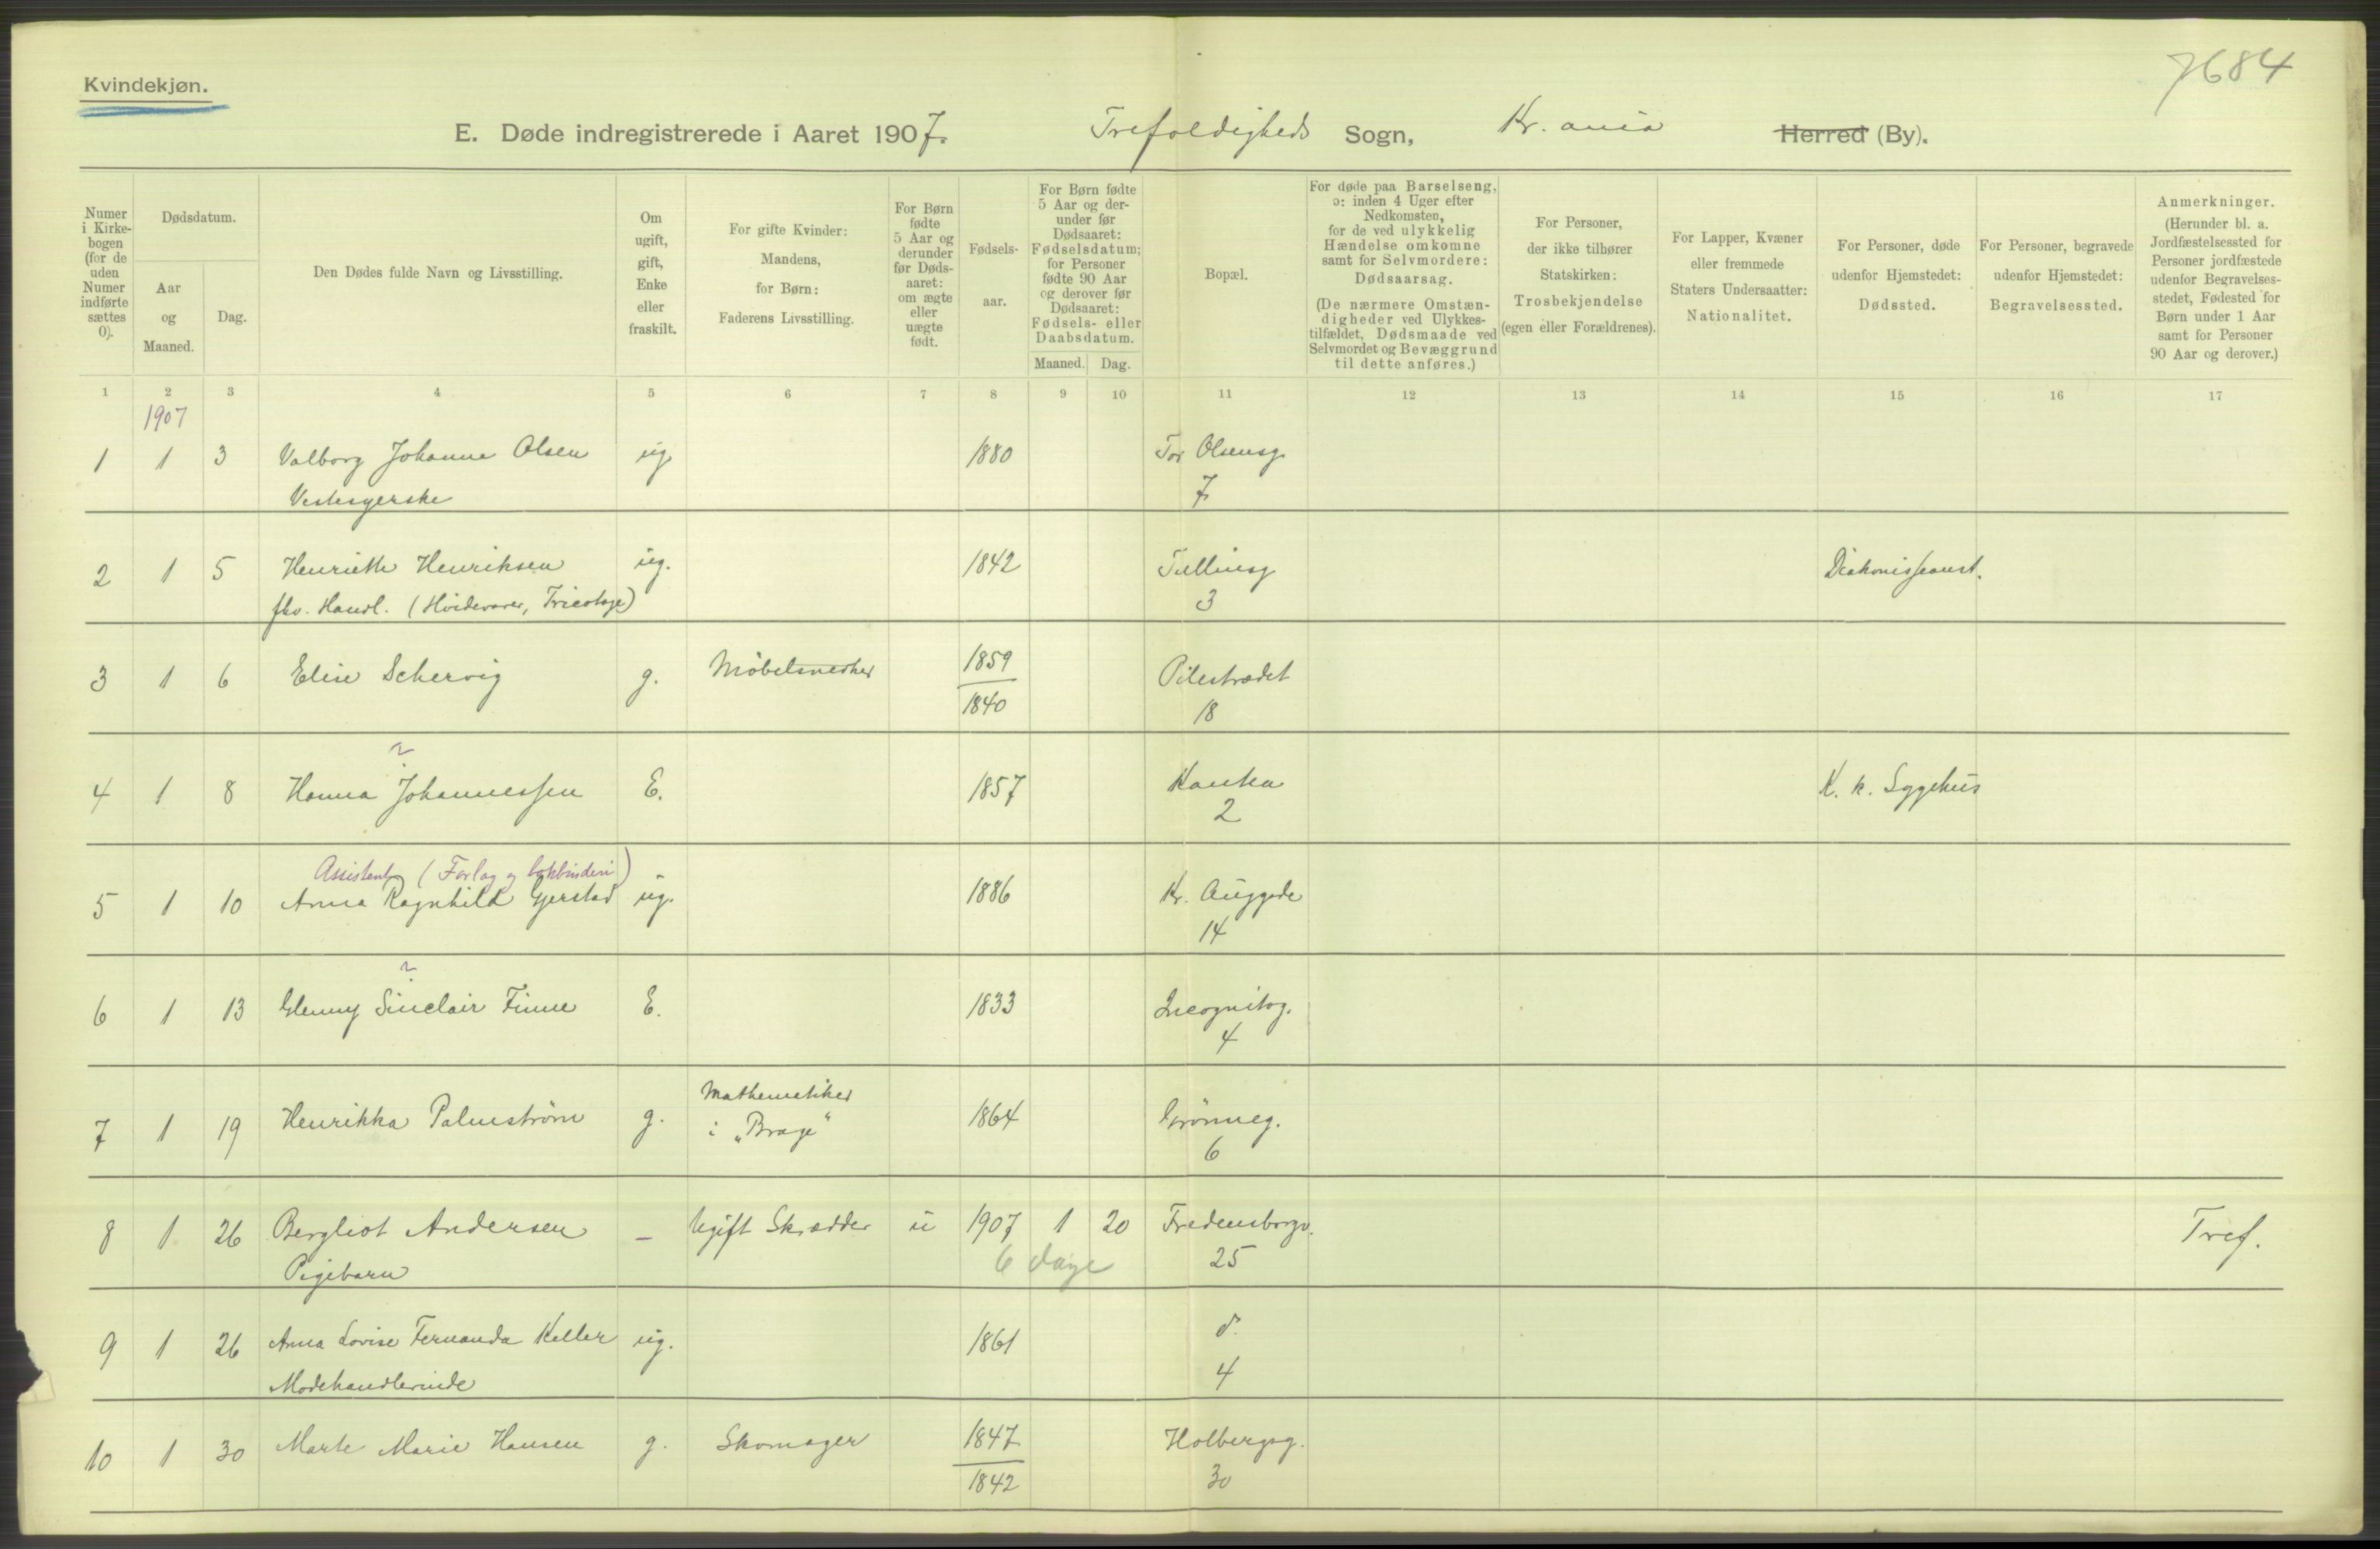 7684
Kvindekjøn.
E. Døde indregistrerede i Aaret 1907. Trefoldigheds Sogn, Kr. ania Herred (By).
Numer i Kirke-bogen (for de uden Numer indførte sættes 0).
Dødsdatum.
Aar og Maaned.
Dag.
Den Dødes fulde Navn og Livsstilling.
Om ugift, gift, Enke eller fraskilt.
For gifte Kvinder: Mandens, for Børn: Faderens Livsstilling.
For Børn fødte 5 Aar og derunder før Døds-aaret: om ægte eller uægte født.
Fødsels-aar.
For Børn fødte 5 Aar og der-under før Dødsaaret: Fødselsdatum; for Personer fødte 90 Aar og derover før Dødsaaret: Fødsels- eller Daabsdatum.
Maaned. Dag.
Bopæl.
For døde paa Barselseng, ɔ: inden 4 Uger efter Nedkomsten, for de ved ulykkelig Hændelse omkomne samt for Selvmordere: Dødsaarsag. (De nærmere Omstæn-digheder ved Ulykkes-tilfældet, Dødsmaade ved Selvmordet og Bevæggrund til dette anføres.)
For Personer, der ikke tilhører Statskirken: Trosbekjendelse (egen eller Forældrenes).
For Lapper, Kvæner eller fremmede Staters Undersaatter: Nationalitet.
For Personer, døde udenfor Hjemstedet: Dødssted.
For Personer, begravede udenfor Hjemstedet: Begravelsessted.
Anmerkninger. (Herunder bl. a. Jordfæstelsessted for Personer jordfæstede udenfor Begravelses-stedet, Fødested for Børn under 1 Aar samt for Personer 90 Aar og derover.)
1 2 3 4 5 6 7 8 9 10 11 12 13 14 15 16 17
1907
1 1 3 Valborg Johanne Olsen ug. 1880 Tor Olsensg.
Vestesyerske 7
2 1 5 Henriette Henriksen ug. 1842 Tullinsg Diakonisseanst.
fhv. Handl. (Hvidevarer, Tricotage) 3
3 1 6 Elise Schervig g. Møbelsnedker 1859 Pilestrædet
1840 18
?
4 1 8 Hanna Johannessen E. 1857 Kanka K. k. Sygehus
2
Assistent (Forlag og bokbinderi)
5 1 10 Anna Ragnhild Gjerstad ug. 1886 Kr. Auggade
14
?
6 1 13 Glenny Sinclair Finne E. 1833 Incognitog.
4
7 1 19 Henrikka Palmstrøm g. Mathematiker 1864 Grønneg.
i „Brage" 6
8 1 26 Bergliot Andersen — Ugift Skrædder u 1907 1 20 Fredensborgv. Tref.
Pigebarn 6 dage 25
9 1 26 Anna Lovise Fernanda Keller ug. 1861 d.
Modehandlerinde 4
10 1 30 Marte Marie Hansen g. Skomager 1847 Holbergsg.
1842 30